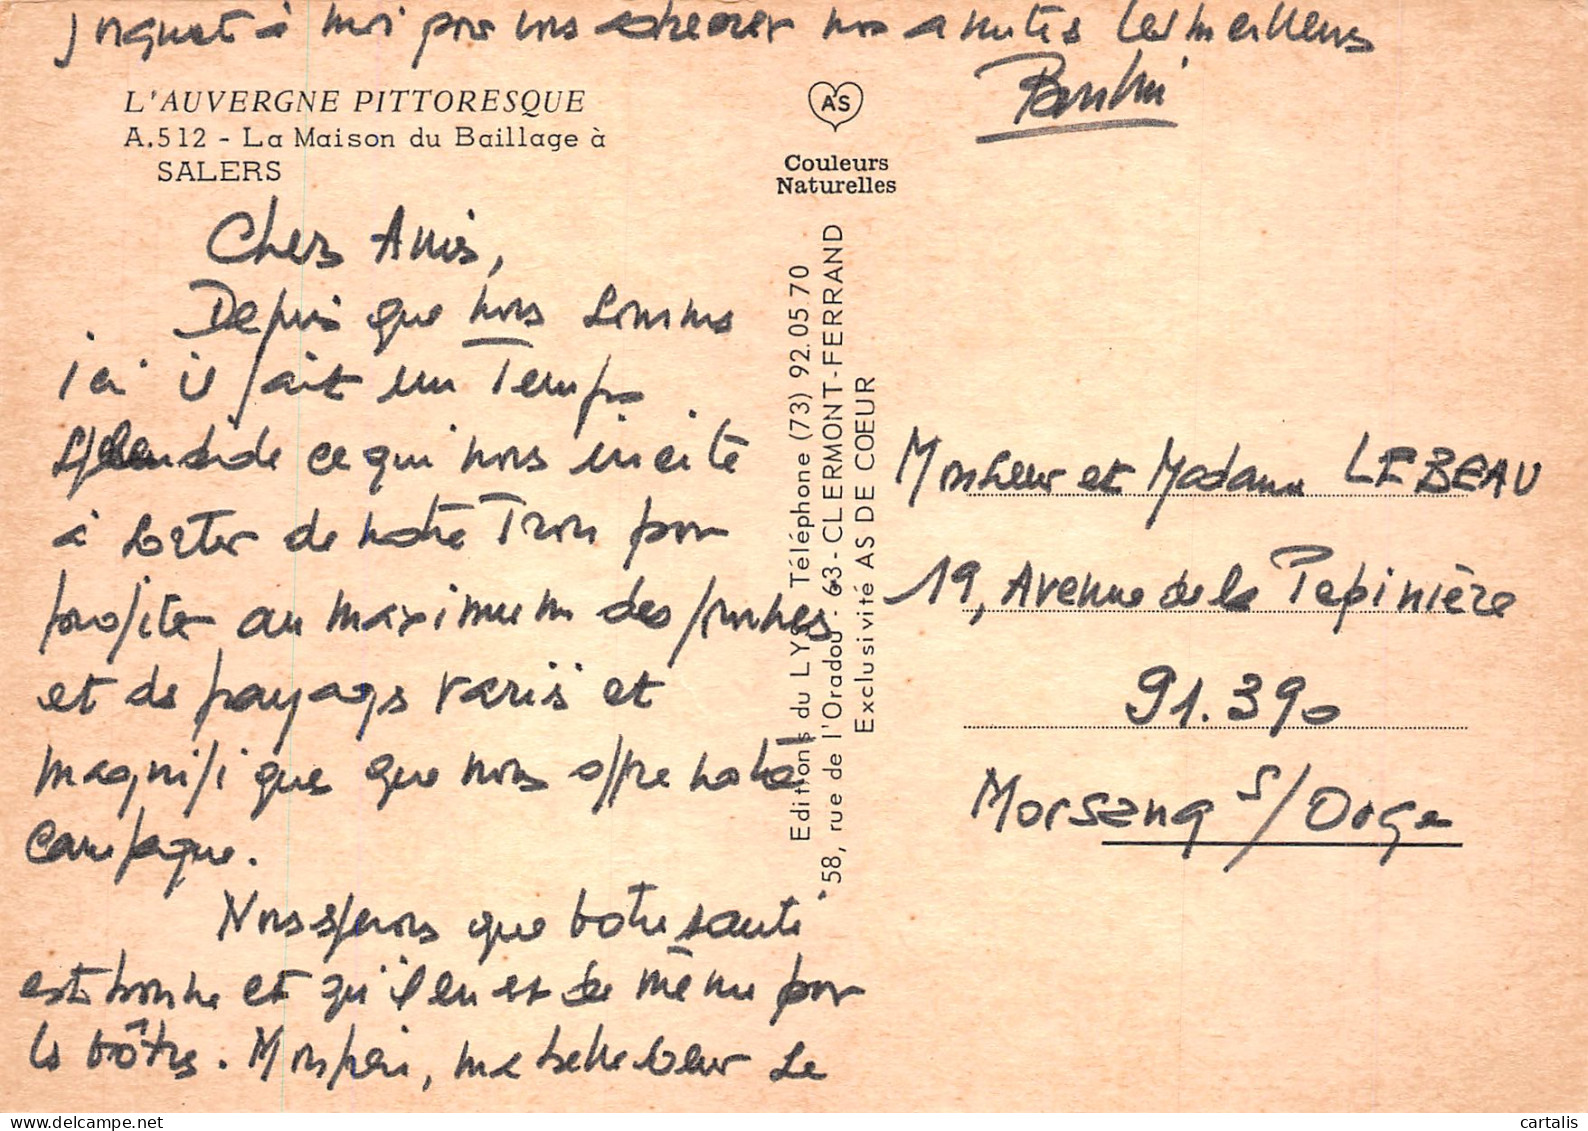 L'AUVERGNE PITTORESQUE
A.512 - La Maison du Baillage à
SALERS
Chers Amis,
Depuis que nous sommes
ici il fait un temps
splendide ce qui nous incite
à sortir de notre trou pour
profiter au maximum des promenades
et de payages variés et
magnifiques que nous offre notre
campagne.
Nous espérons que votre santé
est bonne et qu'il en est de même pour
les vôtres. Mon père, ma belle soeur se
joignent à moi pour vous adresser nos amitiés les meilleures
AS
Couleurs
Naturelles
Editions du LYS Téléphone (73) 92.05.70
58, rue de l'Oradou - 63 - CLERMONT-FERRAND
Exclusivité AS DE COEUR
Monsieur et Madame LEBEAU
19, Avenue de la Pépinière
91.390
Morsang s/Orge
cartalis